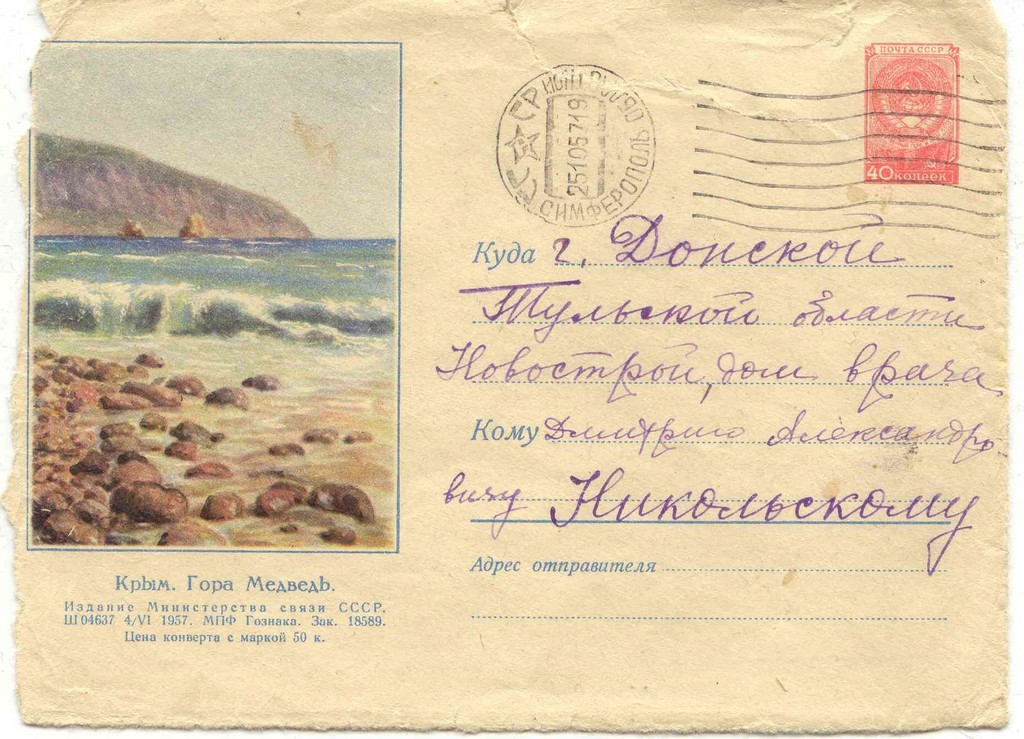 ПОЧТА СССР
40 КОПЕЕК
СССР
СИМФЕРОПОЛЬ
25100571 9
Куда г. Донской
Тульской области
Новострой, дом врача
Кому Дмитрию Александро
вичу Никольскому
Адрес отправителя
Крым. Гора Медведь.
Издание Министерства связи СССР.
Ш 04637 4/VI 1957. МПФ Гознака. Зак. 18589.
Цена конверта с маркой 50 к.